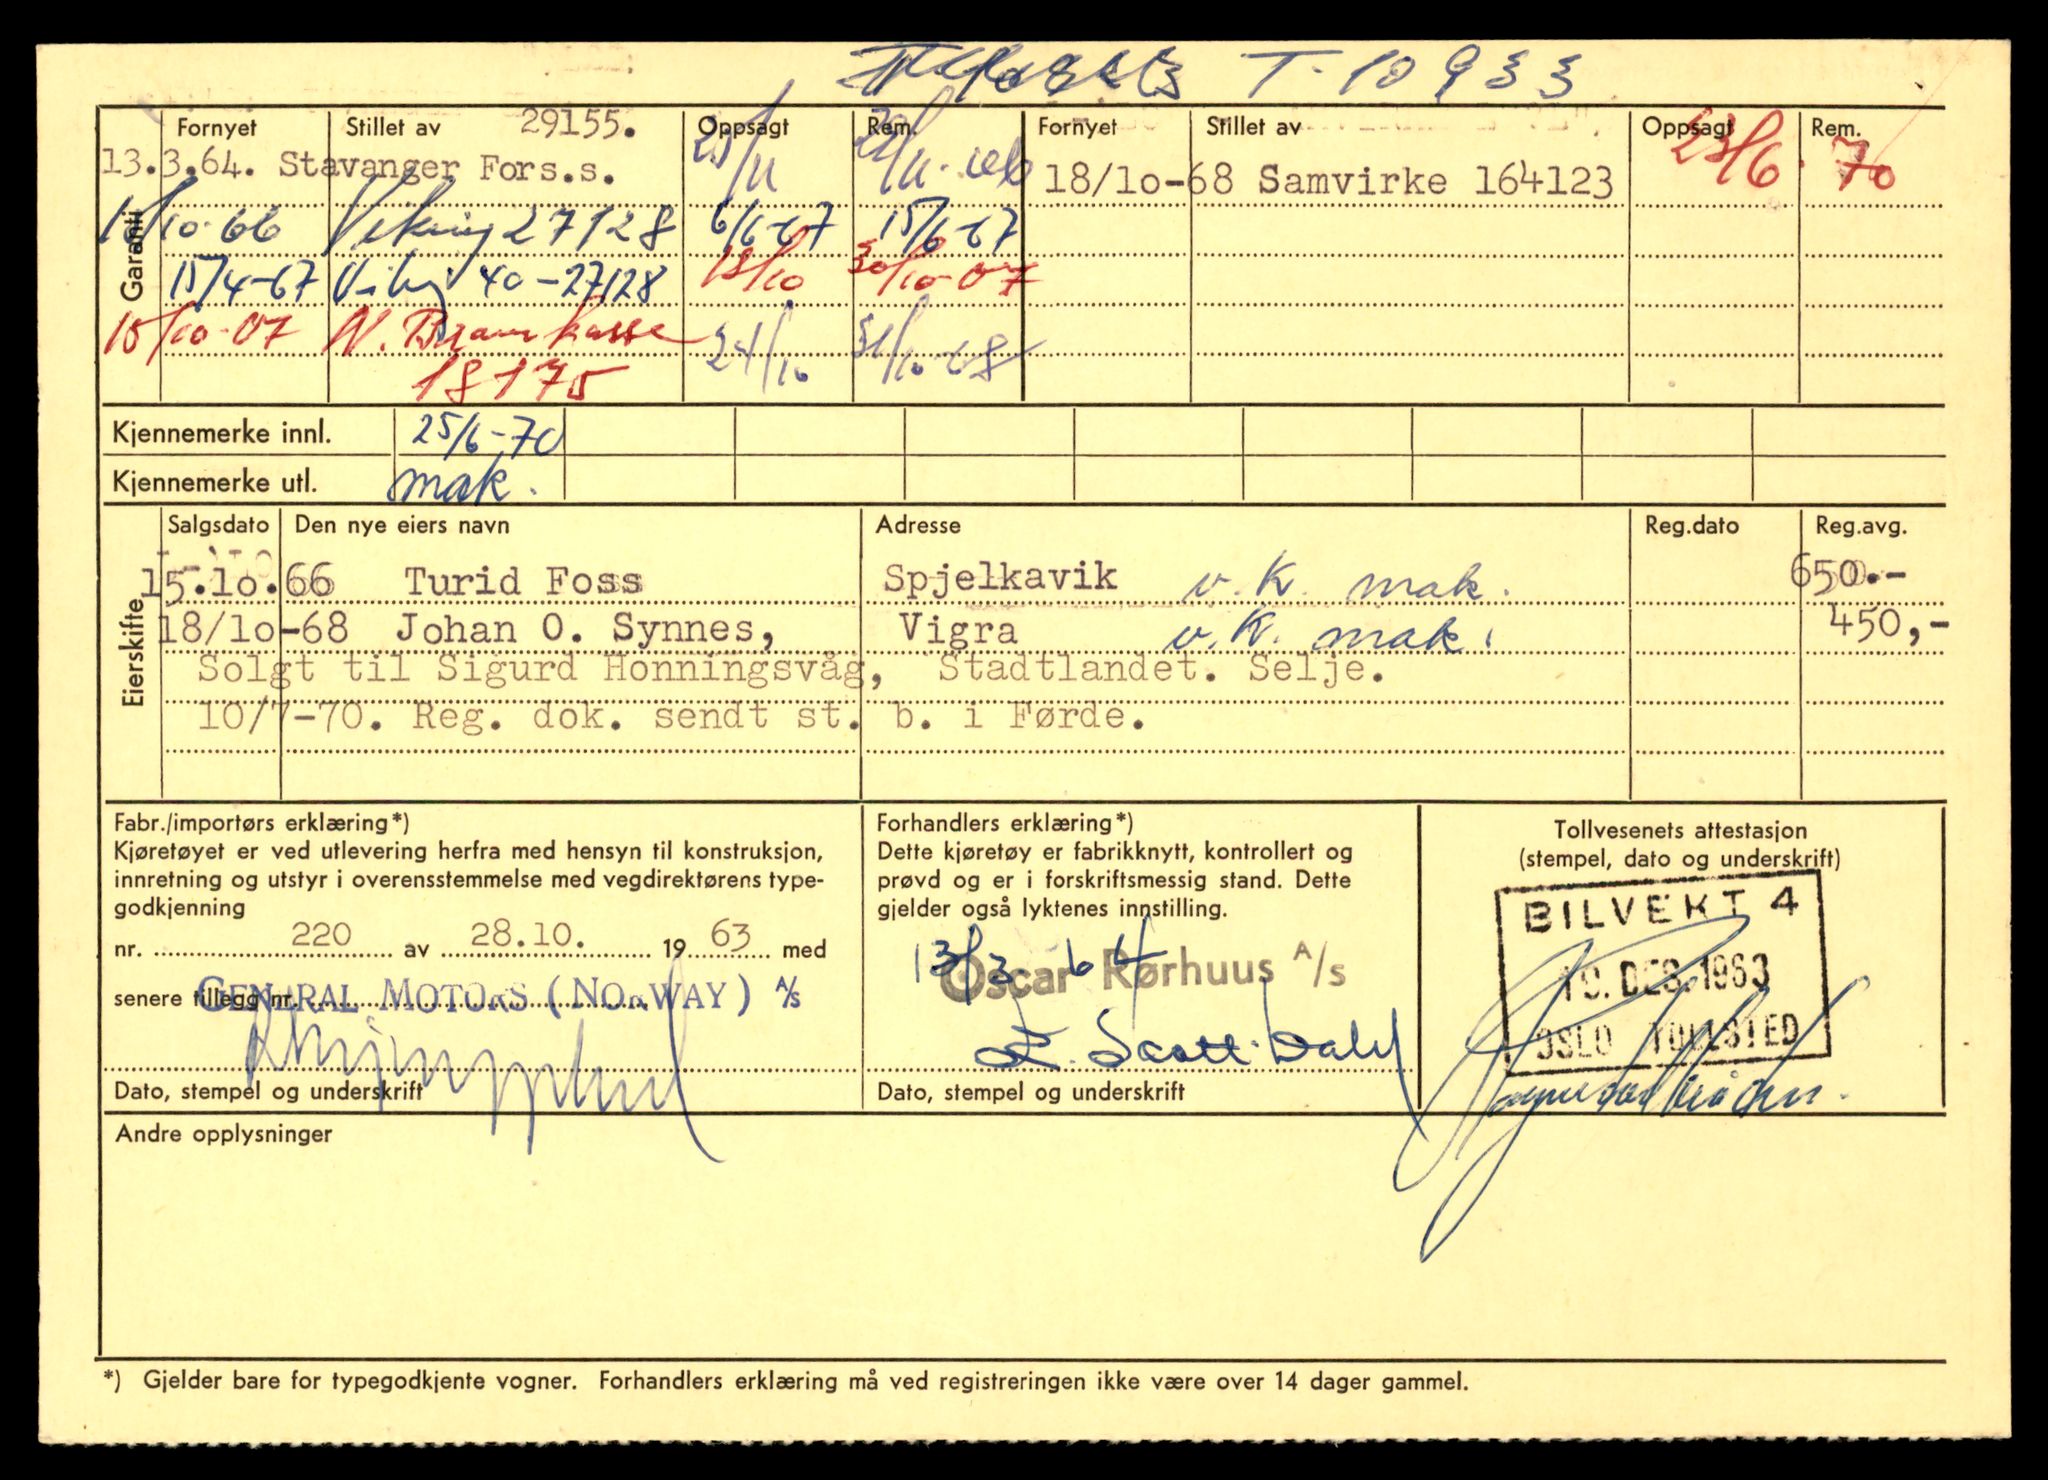 T-10933
Fornyet Stillet av 29155. Oppsagt Rem. Fornyet Stillet av Oppsagt Rem.
13.3.64. Stavanger Fors.s. 18/10-68 Samvirke 164123 23/6. 70
Garanti
15/10-66 Viking 27128 6/6-67 15/6-67
15/4-67 Viking 40-27128 18/10 30/10-67
18/10-67 N. Brannkasse 24/10 31/10-68
18175
Kjennemerke innl. 25/6-70
Kjennemerke utl. mak.
Eierskifte
Salgsdato Den nye eiers navn Adresse Reg.dato Reg.avg.
15.10.66 Turid Foss Spjelkavik v.k. mak. 650.-
18/10-68 Johan O. Synnes, Vigra v.k. mak. 450,-
Solgt til Sigurd Honningsvåg, Stadtlandet. Selje.
10/7-70. Reg. dok. sendt st. b. i Førde.
Fabr./importørs erklæring*)
Kjøretøyet er ved utlevering herfra med hensyn til konstruksjon,
innretning og utstyr i overensstemmelse med vegdirektørens type-
godkjenning
nr. 220 av 28.10. 19 63 med
senere tillegg nr.
GENERAL MOTORS (NORWAY) A/S
Dato, stempel og underskrift
Forhandlers erklæring*)
Dette kjøretøy er fabrikknytt, kontrollert og
prøvd og er i forskriftsmessig stand. Dette
gjelder også lyktenes innstilling.
13/3 64
Oscar Rørhuus A/s
Scott-Dahl
Dato, stempel og underskrift
Tollvesenets attestasjon
(stempel, dato og underskrift)
BILVEKT 4
19. DES. 1963
OSLO TOLLSTED
Andre opplysninger
*) Gjelder bare for typegodkjente vogner. Forhandlers erklæring må ved registreringen ikke være over 14 dager gammel.